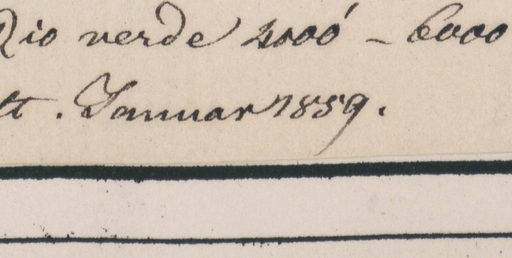 Rio verde 4000' – 6000
tt. Januar 1859.